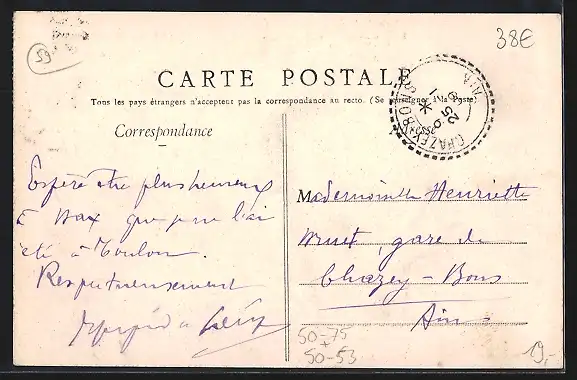 59
38€
CARTE POSTALE
Tous les pays étrangers n'acceptent pas la correspondance au recto. (Se renseigner à la Poste)
CHAZEY-BONS
AIN
25
Correspondance
Adresse
Espère être plus heureux
à Dax que je ne l'ai
été à Toulon.
Respectueusement
Mademoiselle Henriette
gare de
Chazey-Bons
Ain
50-75
50-53
19,-